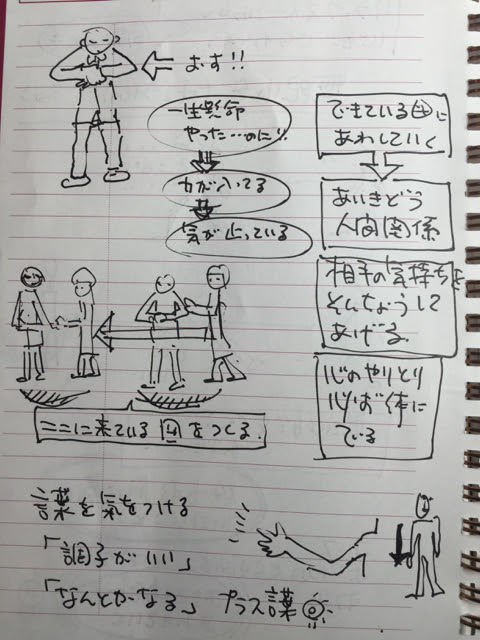 おす!!
一生懸命
やった…のに!!
力が入ってる
気が止っている
できている に
あわしていく
あいきどう
人間関係
相手の気持ちを
そんちょうして
あげる.
心のやりとり
心が体に
でる
ここに来ている をつくる.
言葉を気をつける
「調子がいい」
「なんとかなる」 プラス言葉